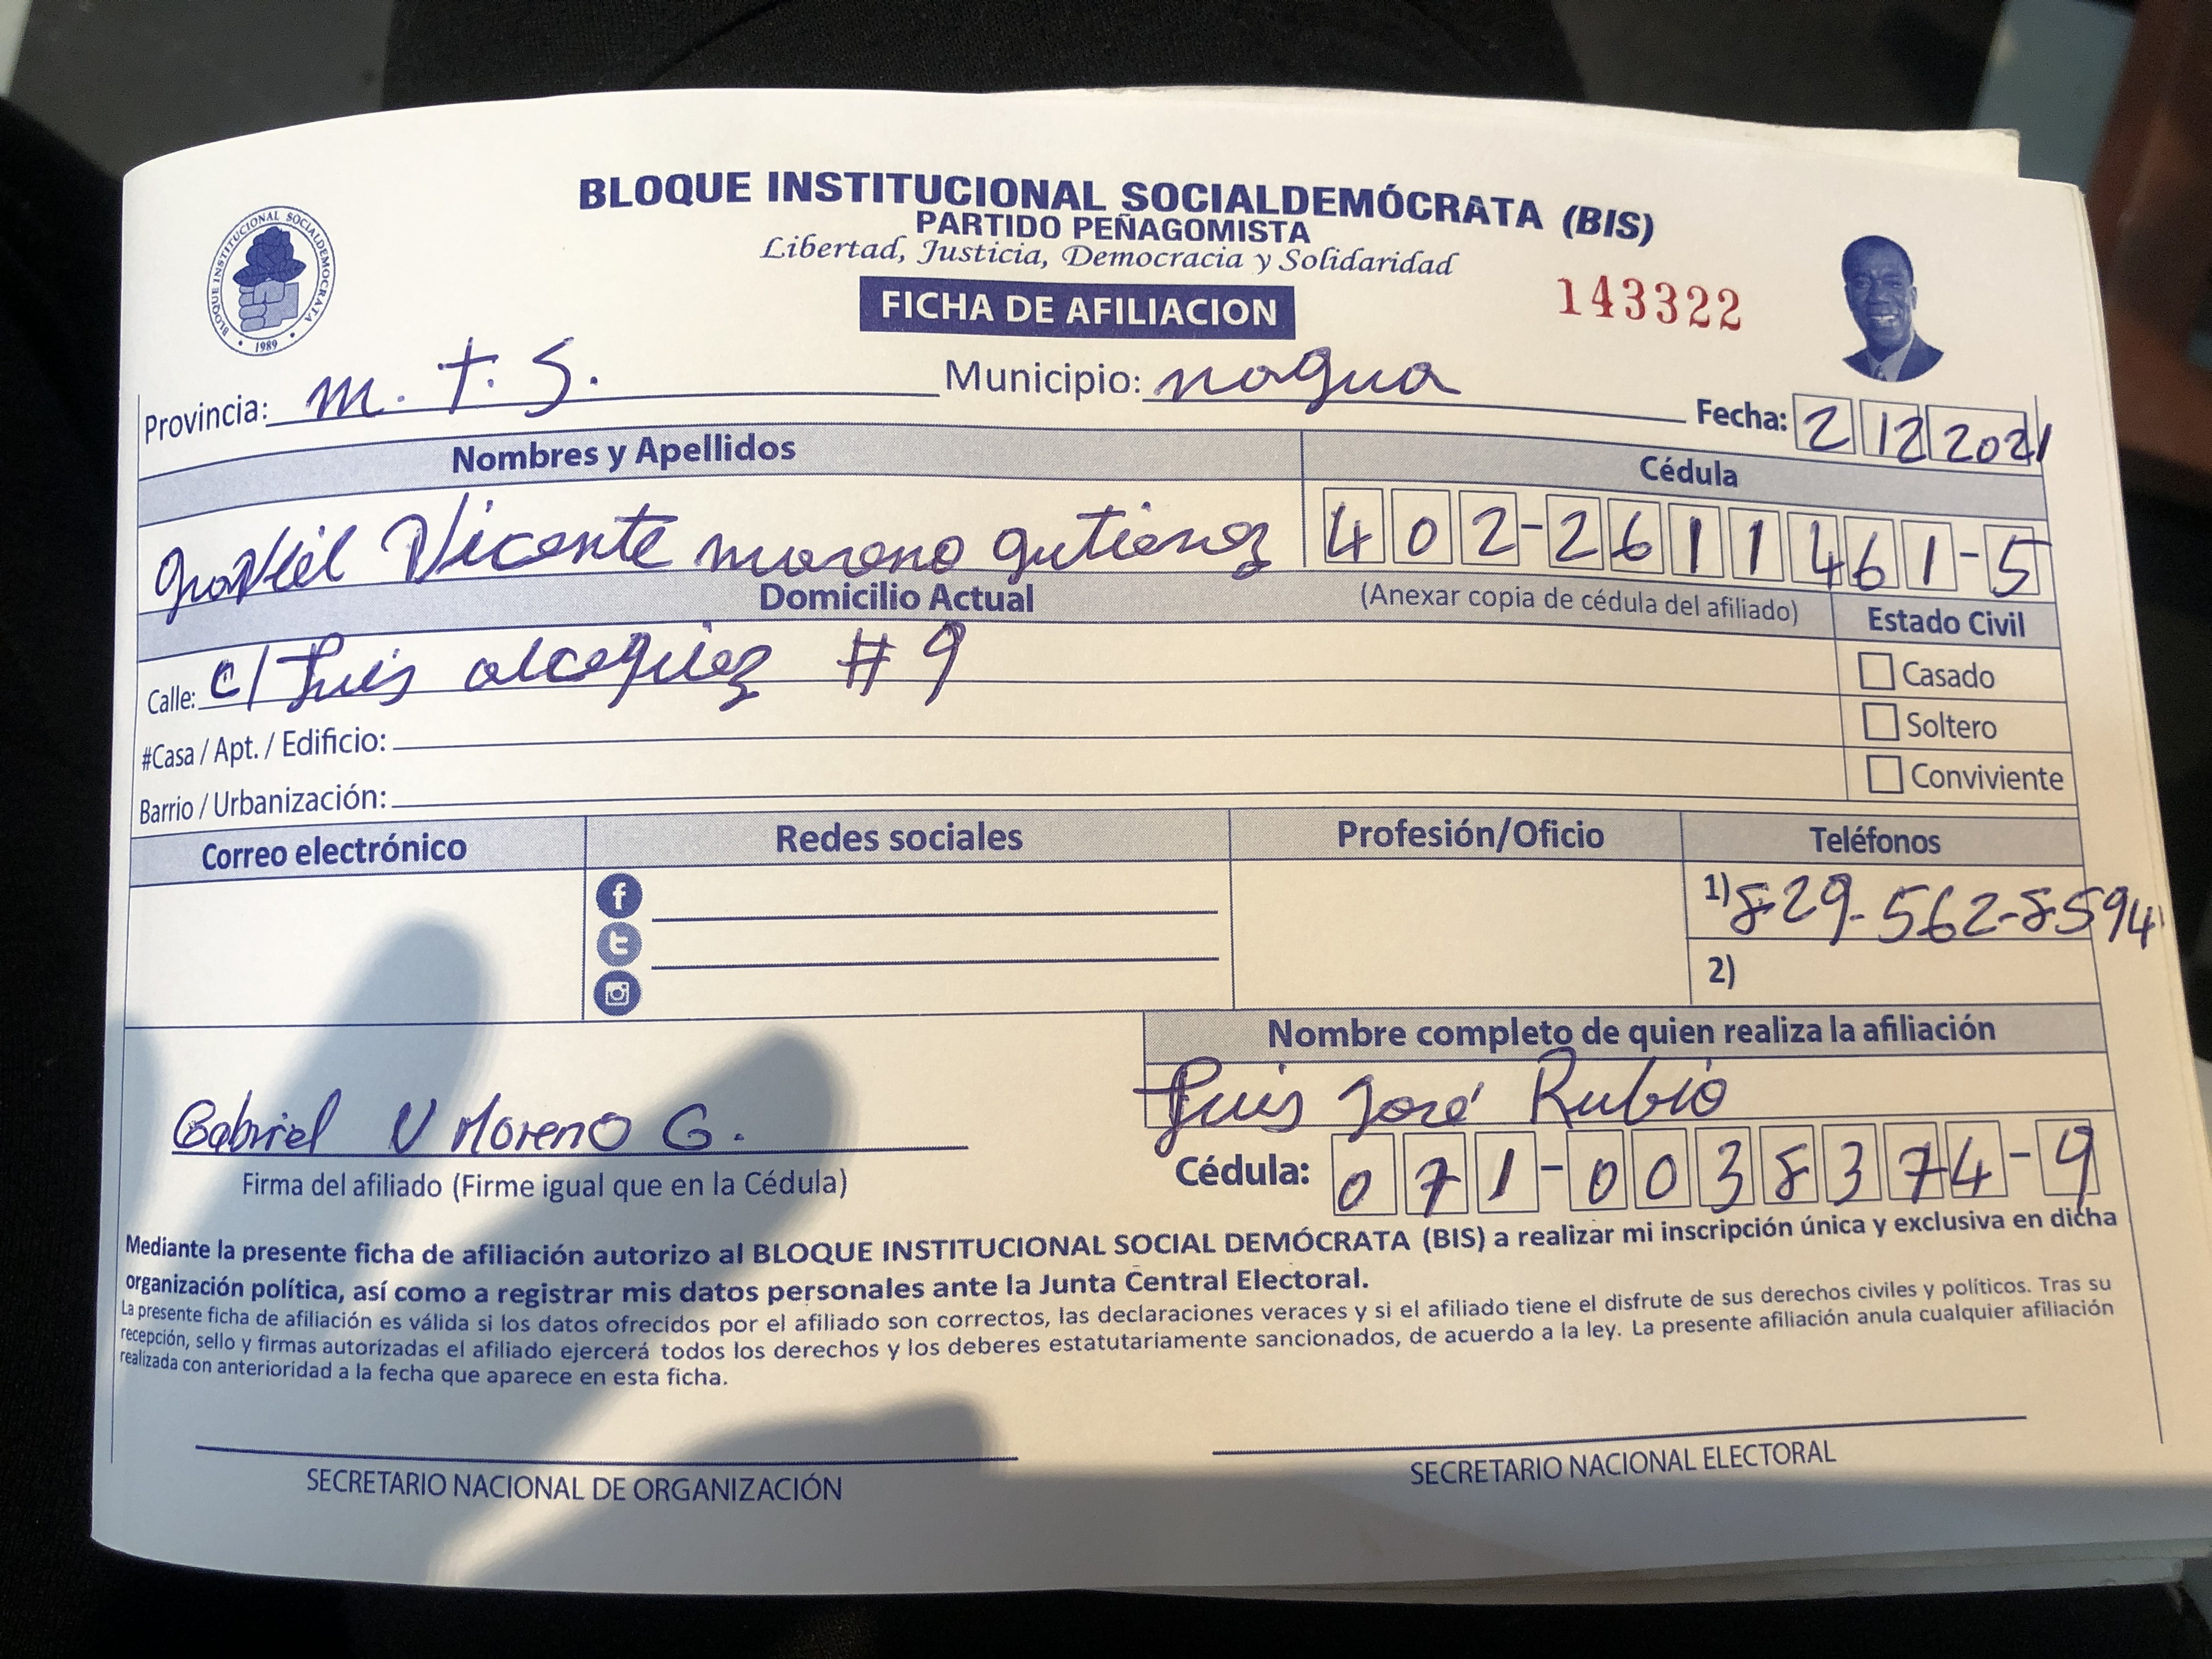 BLOQUE INSTITUCIONAL SOCIALDEMÓCRATA (BIS)
PARTIDO PEÑAGOMISTA
Libertad, Justicia, Democracia y Solidaridad
FICHA DE AFILIACION
143322
BLOQUE INSTITUCIONAL SOCIALDEMOCRATA
1989
Provincia: m. t. S. Municipio: nagua Fecha: 2 12 2021
Nombres y Apellidos Cédula
Vicente moreno 402-2611461-5
Domicilio Actual (Anexar copia de cédula del afiliado) Estado Civil
Calle: c/ Luis # 9
Casado
#Casa / Apt. / Edificio:
Soltero
Barrio / Urbanización:
Conviviente
Correo electrónico Redes sociales Profesión/Oficio Teléfonos
1) 829-562-8594
2)
Nombre completo de quien realiza la afiliación
Luis José Rubio
Gabriel V Moreno G.
Cédula: 071-0038374-9
Firma del afiliado (Firme igual que en la Cédula)
Mediante la presente ficha de afiliación autorizo al BLOQUE INSTITUCIONAL SOCIAL DEMÓCRATA (BIS) a realizar mi inscripción única y exclusiva en dicha
organización política, así como a registrar mis datos personales ante la Junta Central Electoral.
La presente ficha de afiliación es válida si los datos ofrecidos por el afiliado son correctos, las declaraciones veraces y si el afiliado tiene el disfrute de sus derechos civiles y políticos. Tras su
recepción, sello y firmas autorizadas el afiliado ejercerá todos los derechos y los deberes estatutariamente sancionados, de acuerdo a la ley. La presente afiliación anula cualquier afiliación
realizada con anterioridad a la fecha que aparece en esta ficha.
SECRETARIO NACIONAL DE ORGANIZACIÓN SECRETARIO NACIONAL ELECTORAL